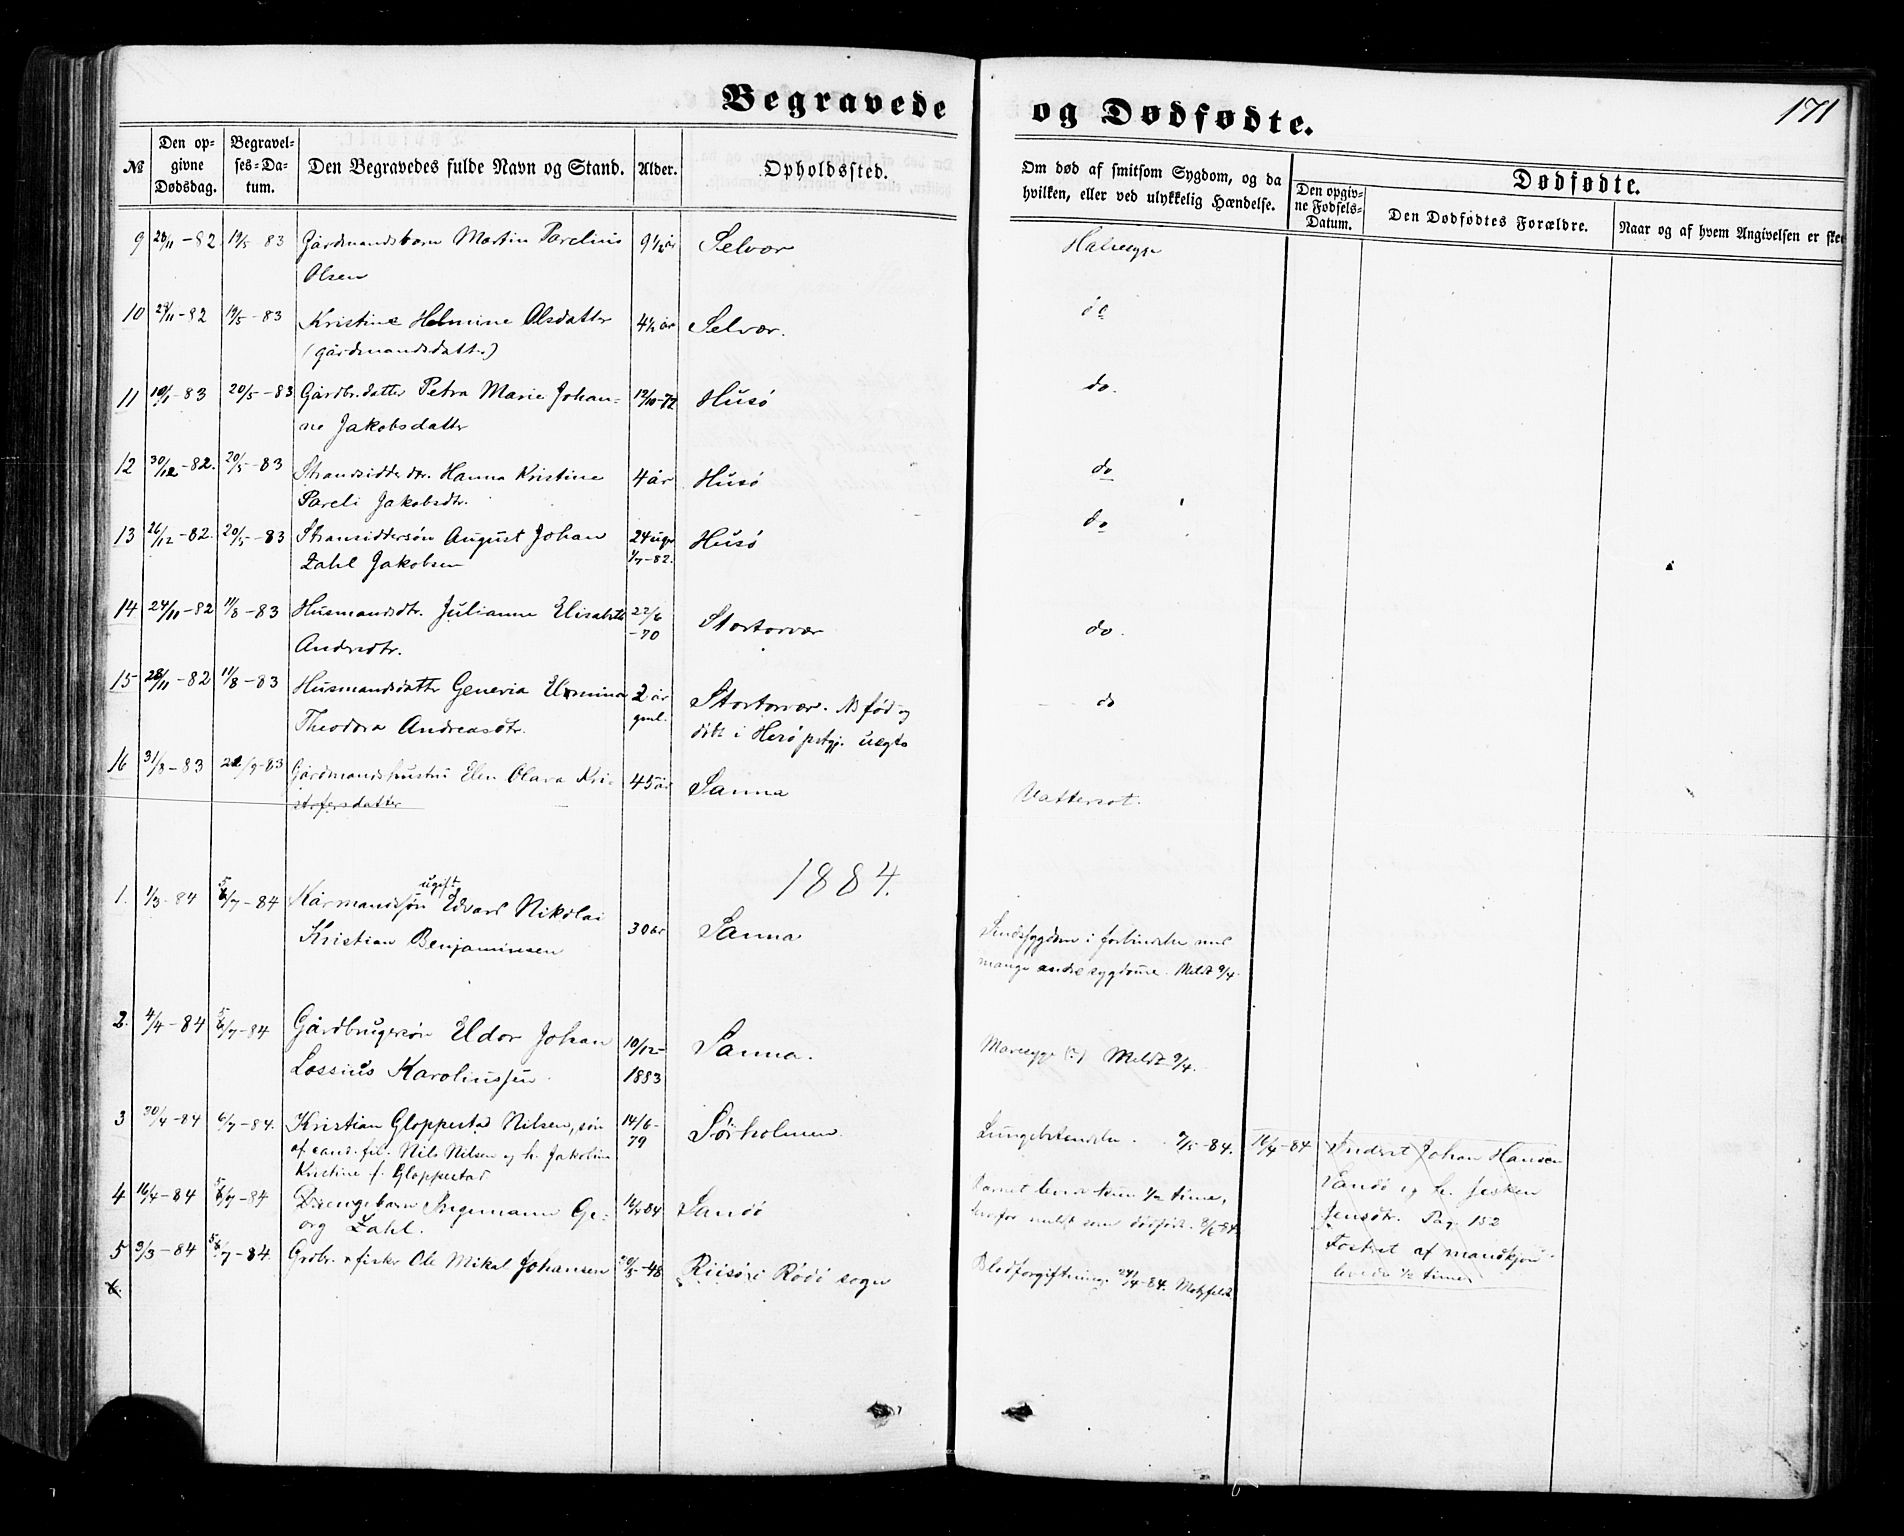 Begravede og Dødfødte.
171
№
Den opgivne Dødsdag.
Begravelses=Datum.
Den Begravedes fulde Navn og Stand.
Alder.
Opholdssted.
Om død af smitsom Sygdom, og da
hvilken, eller ved ulykkelig Hændelse.
Dødfødte.
Den opgivne Fødsels-Datum.
Den Dødfødtes Forældre.
Naar og af hvem Angivelsen er skee
9 26/11-82 19/5 83 Gårdmandsbarn Martin Parelius 9 1/2 år Selvær Halssyge
Olsen
10 29/11-82 19/5-83 Kristine Helmine Olsdatter 4 1/2 år Selvær. do
(gårdmandsdatt.)
11 10/1-83 20/5-83 Gårdbr.datter Petra Marie Johan- 12/10-72 Husö do.
ne Jakobsdatter
12 30/12-82. 20/5-83 Strandsidderdtr. Hanna Kristine 4 år Husö do
Pareli Jakobsdtr.
13 26/12-82. 20/5-83 Stransiddersön August Johan 24 uger Husö do
Zahl Jakobsen 1/7-82.
14 24/11-82 11/8-83 Husmandsdtr. Julianne Elisabeth 22/6 Stortorvær do.
Andrsdtr. -70
15 28/11-82 11/8-83 Husmandsdatter Generia Elomina 2 år Stortorvær. NB fød og do
Theodora Andreasdtr. gml. döbt i Herö pstgj. uægte
16 31/8-83 22/9-83 Gårdmandshustru Elen Olava Kri- 45 år Sanna Vattersot.
stofersdatter
1884.
1. 1/3-84 5/7-84 Kårmandssön ugift Edvard Nikolai 30 år Sanna Sindssygdom i forbindelse med
Kristian Benjaminsen mange andre sygdomme. Meldt 9/4.
2. 4/4-84 5/7-84 Gårdbrugersön Eldor Johan 10/12- Sanna. Mavesyge (?) Meldt 9/4.
Lossius Karoliussen. 1883
3 30/4-84 6/7-84. Kristian Gloppestad Nilsen, sön 14/6- Sörholmen. Lungebetændelse. 9/5-84.
af cand. fil. Nils Nilsen og h. Jakobine 79
Kristine f. Gloppestad
16/4-84 Andert Johan Hansen
Sandö og h. Jesken
Jensdtr. Pag. 152
Fostret af mandkjön
levede 1/2 time
4 16/4-84 5/7-84 Drengebarn Ingemann Ge- 16/4 84 Sandö Barnet levede kun 1/2 time,
org Zahl. hvorfor meldt som dödfödt.
5 3/3-84 5/7-84. Grdbr. & fisker Ole Mikal Johansen 20/5-48 Riisö i Rödö sogn Blodforgiftning. 24/4-84. Motzfeldt
6.